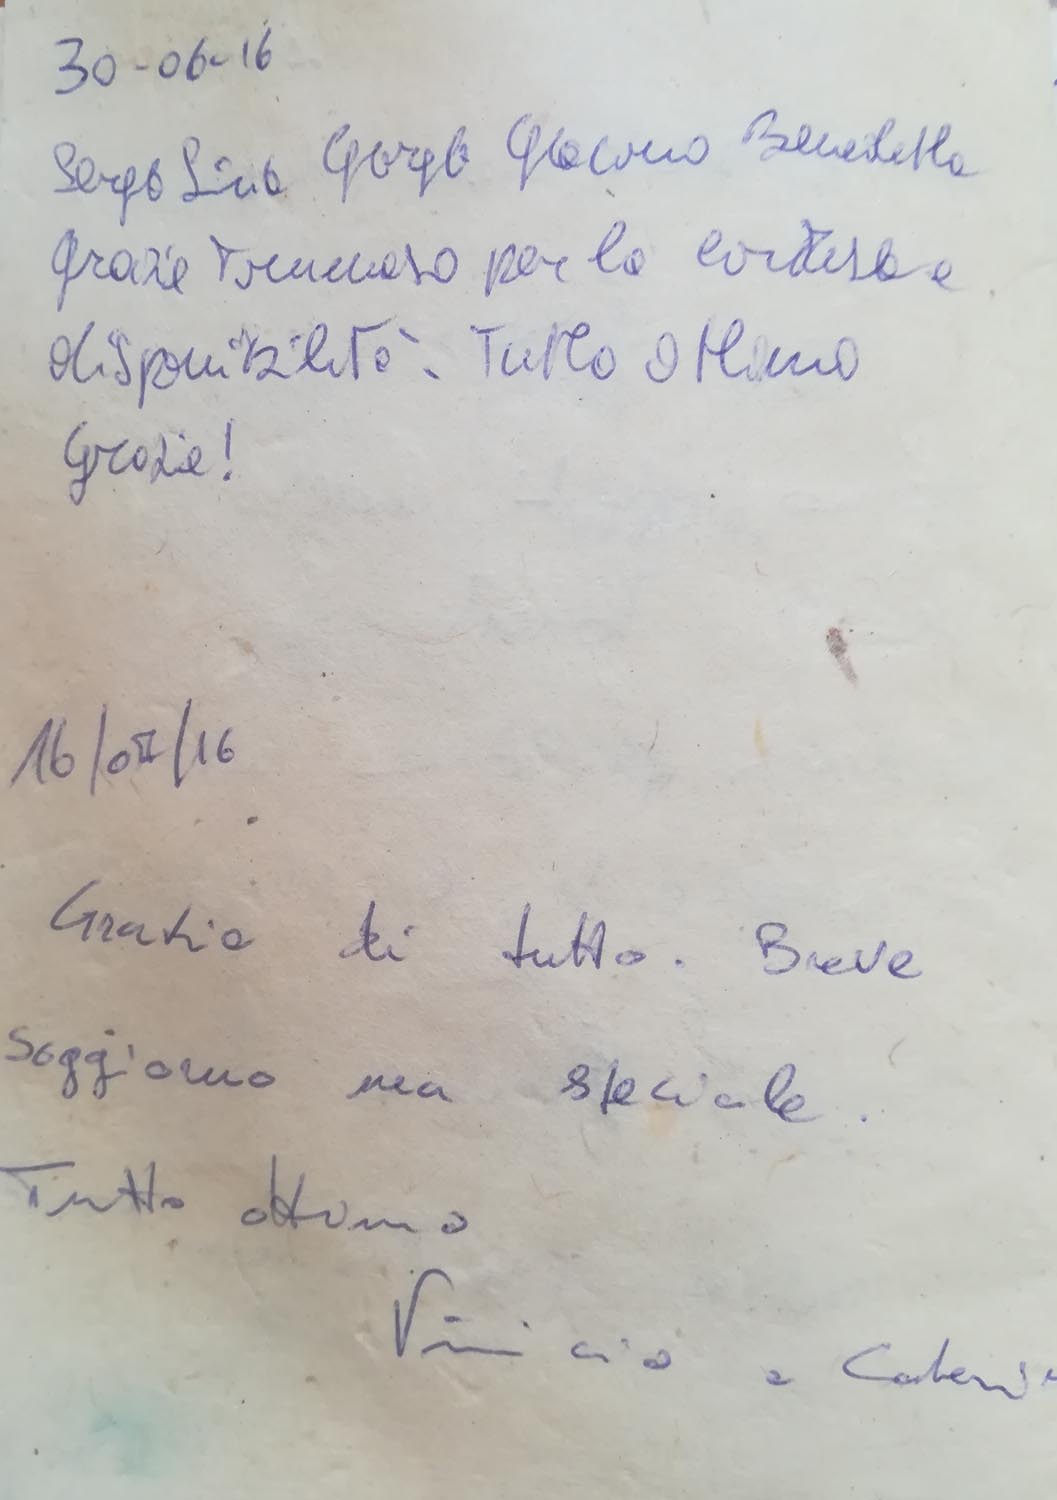 30-06-16
Sergio Lina Giorgio Giacomo Benedetta
Grazie Tommaso per la cortesia e
disponibilità. Tutto ottimo
Grazie!
16/07/16
Grazie di tutto. Breve
soggiorno ma speciale.
Tutto ottimo
Vinicio e